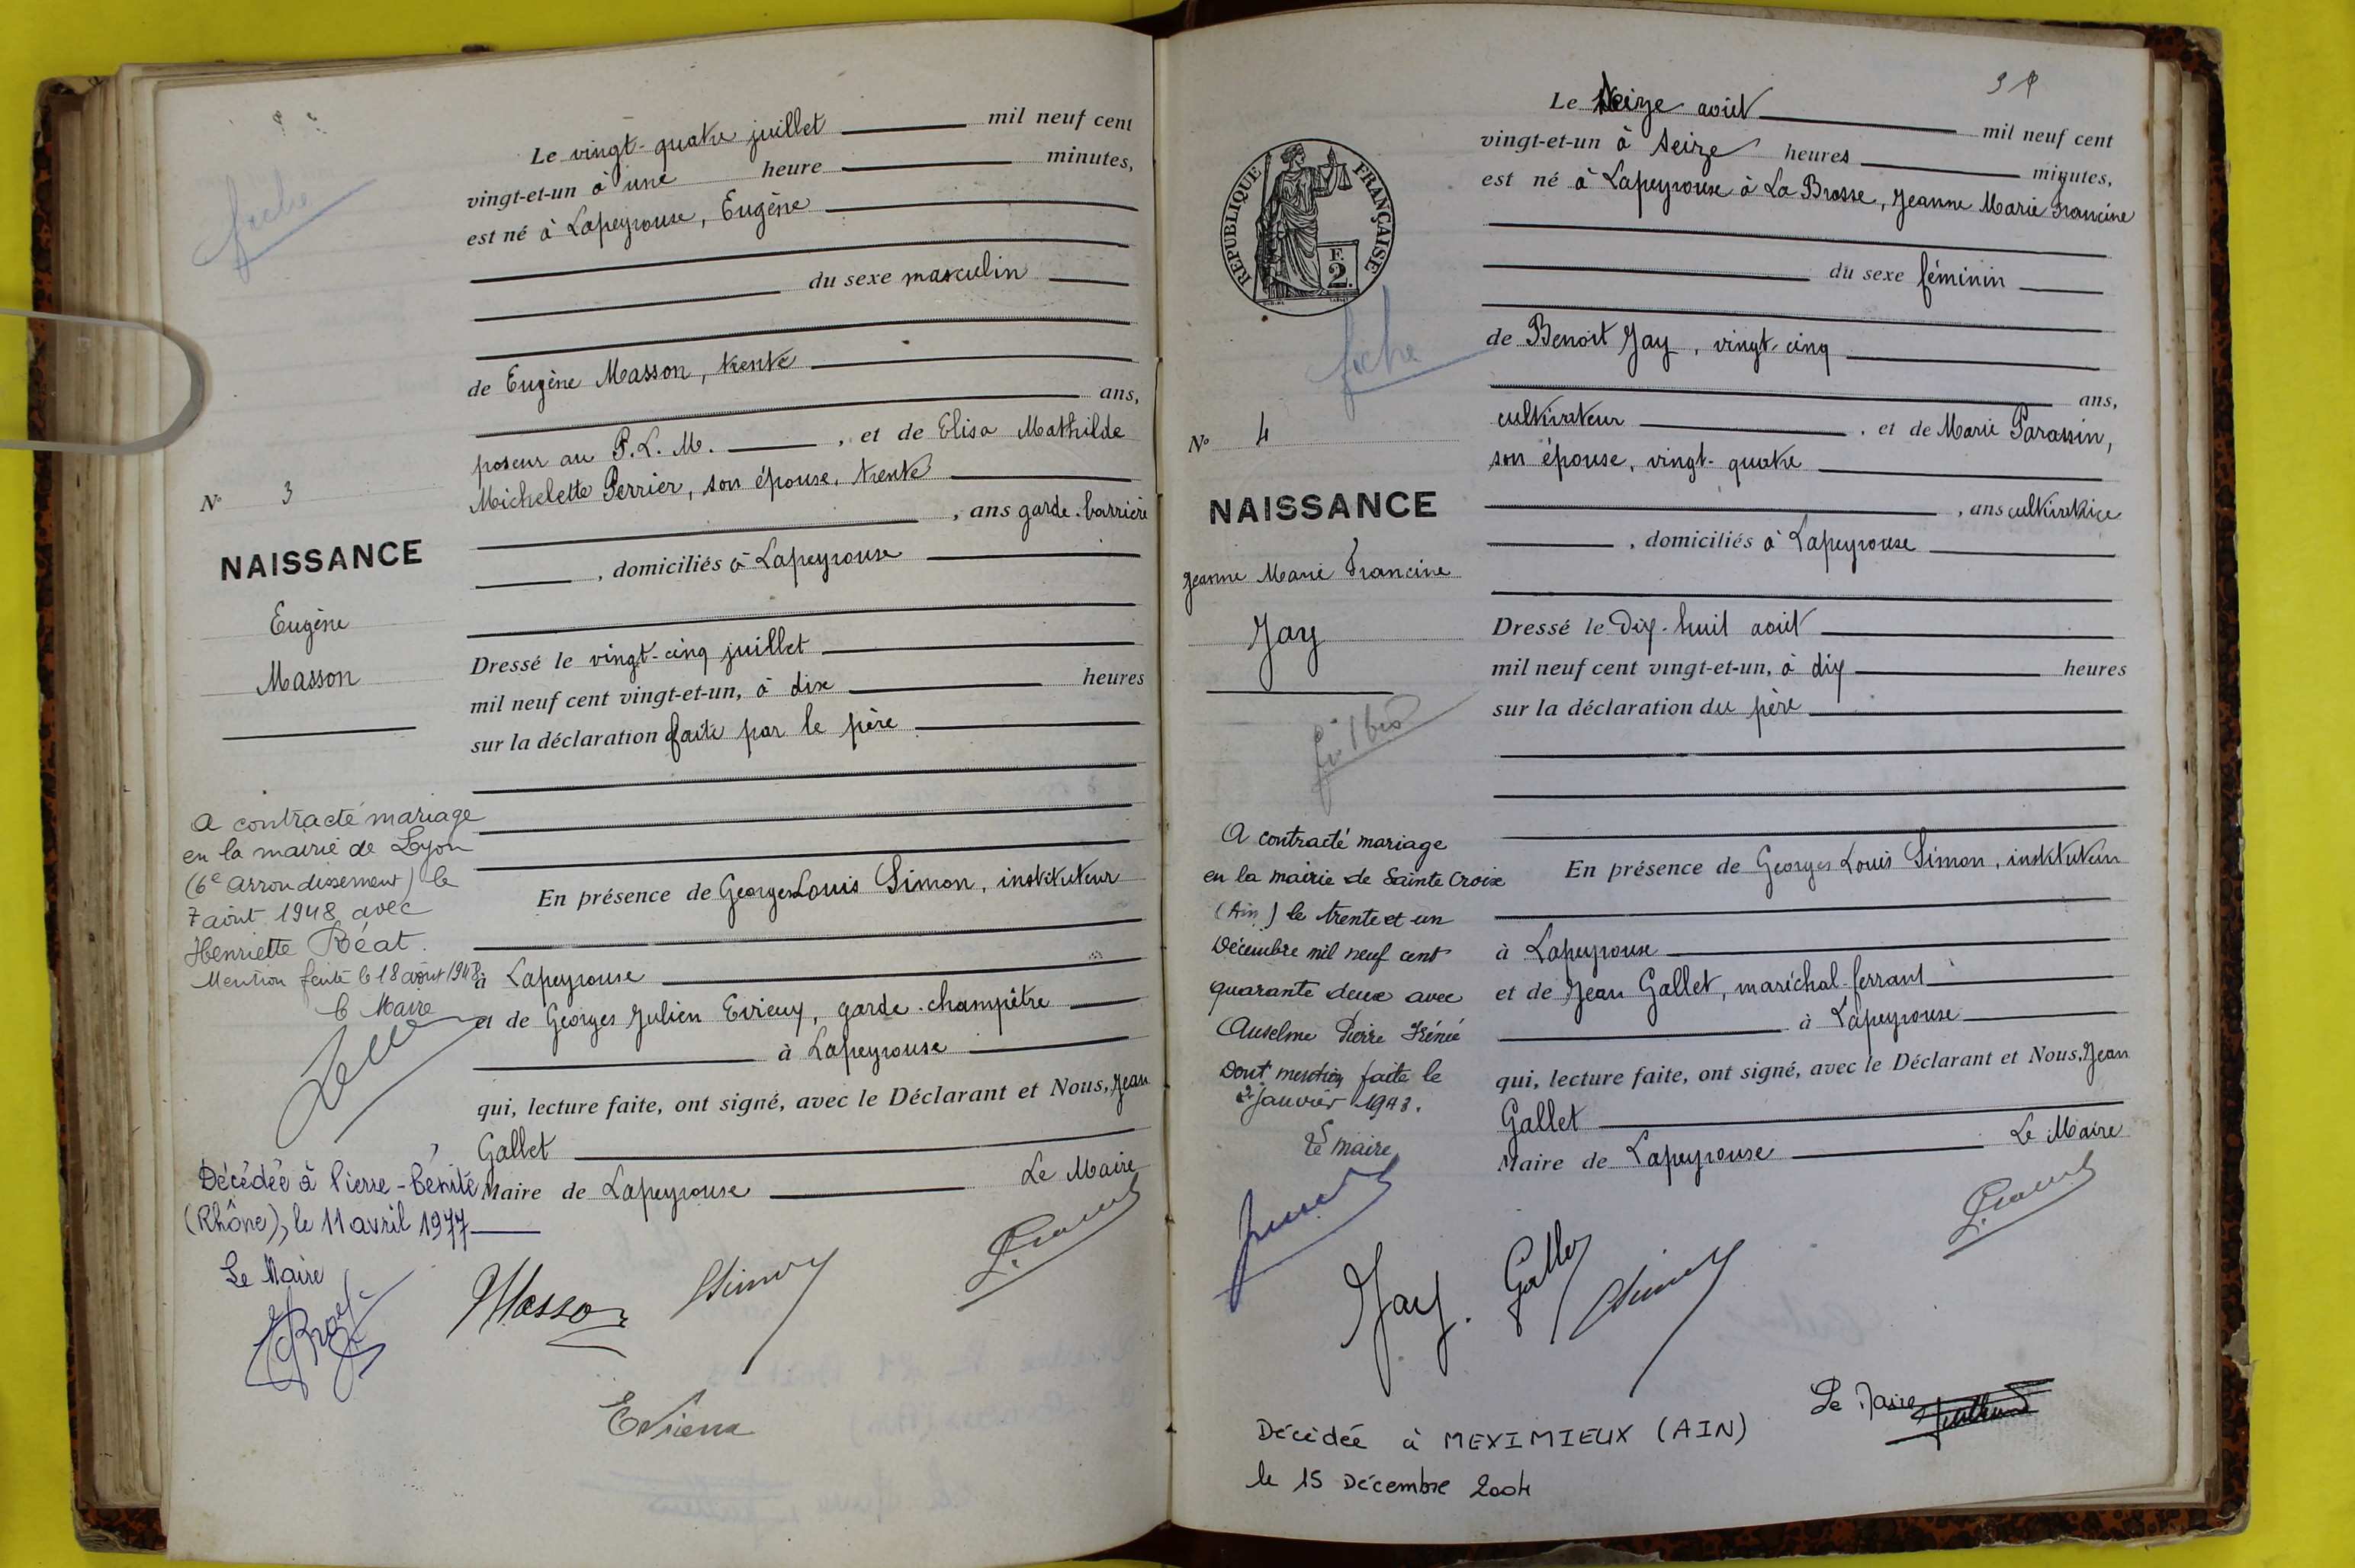 Le vingt-quatre juillet mil neuf cent
vingt-et-un à une heure minutes,
est né à Lapeyrouse, Eugène
du sexe masculin
de Eugène Masson, trente
ans,
poseur au P.L.M. , et de Elisa Mathilde
Michelette Perrier, son épouse, trente
, ans garde-barrière
, domiciliés à Lapeyrouse
Dressé le vingt-cinq juillet
mil neuf cent vingt-et-un, à dix heures
sur la déclaration faite par le père
En présence de Georges Louis Simon, instituteur
à Lapeyrouse
et de Georges Julien Evieux, garde-champêtre
à Lapeyrouse
qui, lecture faite, ont signé, avec le Déclarant et Nous, Jean
Gallet
Maire de Lapeyrouse Le Maire
Masson Simon
fiche
N° 3
NAISSANCE
Eugène
Masson
A contracté mariage
en la mairie de Lyon
(6e arrondissement) le
7 août 1948 avec
Henriette Réat.
Mention faite le 18 août 1948
le Maire
Décédée à Pierre-Bénite
(Rhône), le 11 avril 1977
Le Maire
Le seize août mil neuf cent
vingt-et-un à seize heures minutes,
est né à Lapeyrouse à La Brosse, Jeanne Marie Francine
du sexe féminin
de Benoit Jay, vingt-cinq
ans,
cultivateur , et de Marie Parassin,
son épouse, vingt-quatre
, ans cultivatrice
, domiciliés à Lapeyrouse
Dressé le Dix-huit août
mil neuf cent vingt-et-un, à dix heures
sur la déclaration du père
En présence de Georges Louis Simon, instituteur
à Lapeyrouse
et de Jean Gallet, maréchal-ferrant
à Lapeyrouse
qui, lecture faite, ont signé, avec le Déclarant et Nous, Jean
Gallet
Maire de Lapeyrouse Le Maire
Jay. Gallet Simon
RÉPUBLIQUE FRANÇAISE
F.
2.
fiche
N° 4
NAISSANCE
Jeanne Marie Francine
Jay
A contracté mariage
en la mairie de Sainte Croix
(Ain) le trente et un
Décembre mil neuf cent
quarante deux avec
Anselme Pierre Irénée
Dont mention faite le
2 Janvier 1943.
Le maire
Décédée à MEXIMIEUX (AIN)
le 15 Décembre 2004
Le Maire